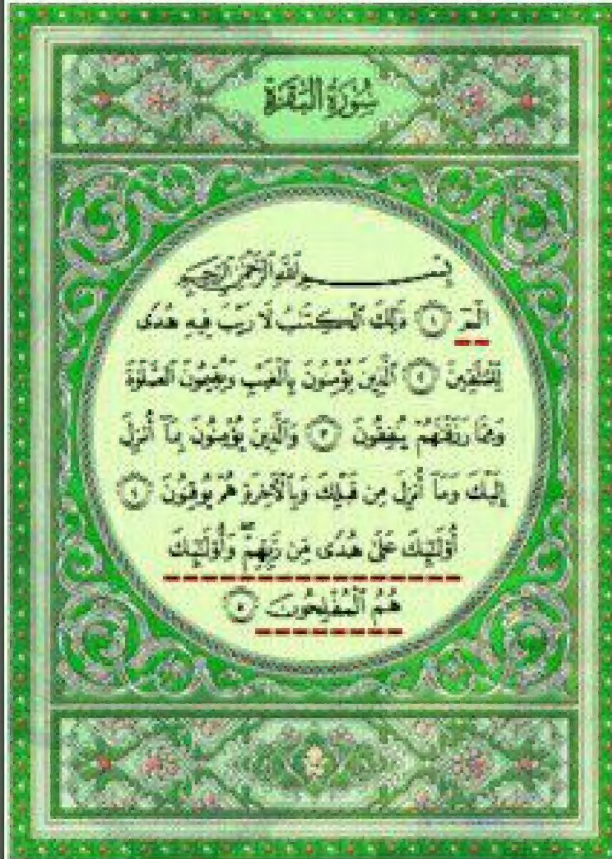 سُورَةُ الْبَقَرَةِ
بِسْمِ اللَّهِ الرَّحْمَٰنِ الرَّحِيمِ
الٓمٓ ١ ذَٰلِكَ الْكِتَٰبُ لَا رَيْبَ فِيهِ هُدًى
لِّلْمُتَّقِينَ ٢ الَّذِينَ يُؤْمِنُونَ بِالْغَيْبِ وَيُقِيمُونَ الصَّلَوٰةَ
وَمِمَّا رَزَقْنَٰهُمْ يُنفِقُونَ ٣ وَالَّذِينَ يُؤْمِنُونَ بِمَآ أُنزِلَ
إِلَيْكَ وَمَآ أُنزِلَ مِن قَبْلِكَ وَبِالْءَاخِرَةِ هُمْ يُوقِنُونَ ٤
أُو۟لَٰٓئِكَ عَلَىٰ هُدًى مِّن رَّبِّهِمْ ۖ وَأُو۟لَٰٓئِكَ
هُمُ الْمُفْلِحُونَ ٥